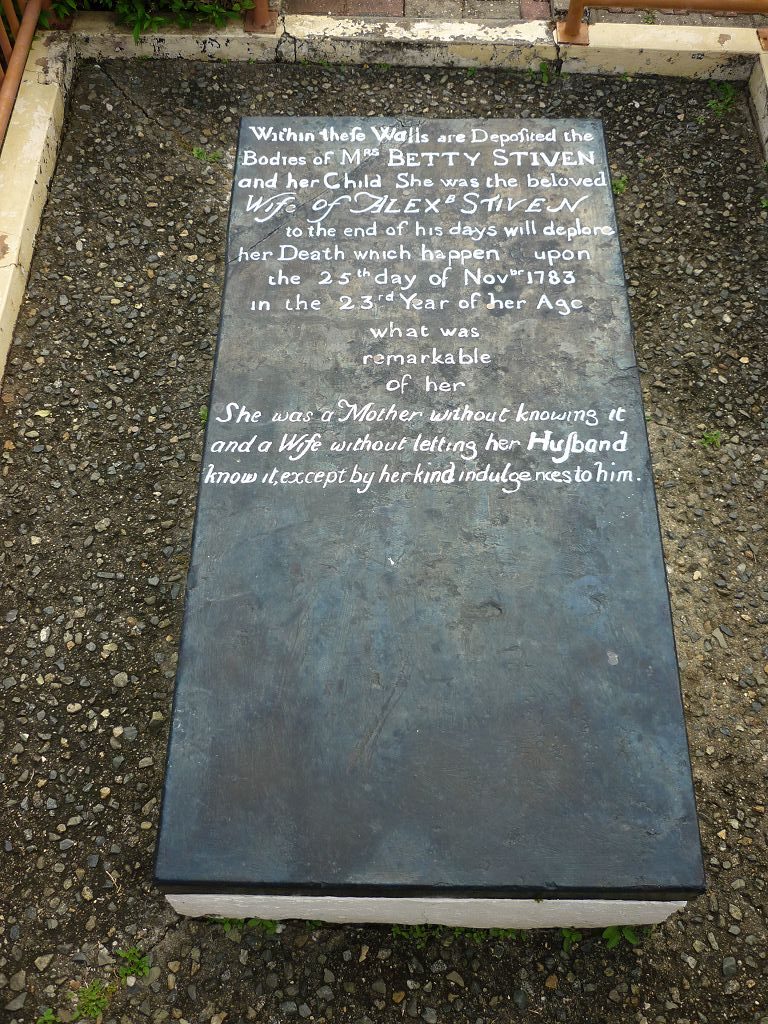 Within theſe Walls are Depoſited the
Bodies of Mrs BETTY STIVEN
and her Child She was the beloved
Wife of ALEXB STIVEN
to the end of his days will deplore
her Death which happen upon
the 25th day of Novbr 1783
in the 23rd Year of her Age
what was
remarkable
of her
She was a Mother without knowing it
and a Wife without letting her Huſband
know it, except by her kind indulgences to him.